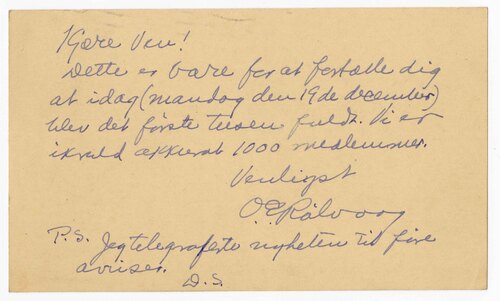 Kjære Ven!
Dette er bare for at fortælle dig
at idag (mandag den 19de december)
blev det første tusen fuldt. Vi er
ikveld akkurat 1000 medlemmer.
Venligst
O.E. Rölvaag
P.S. Jeg telegraferte nyheten til fire
aviser.
D.S.